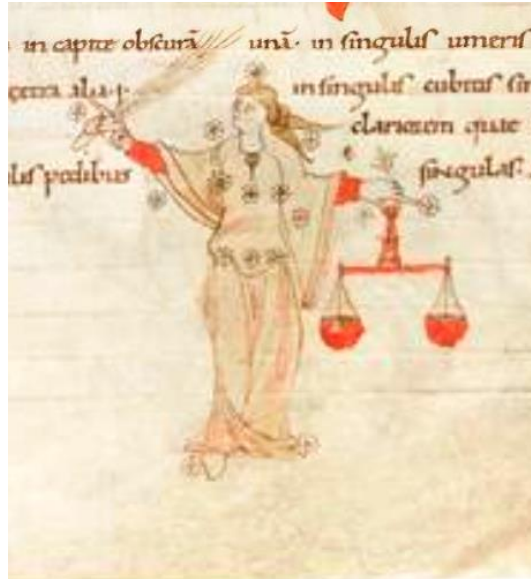 in capite obscurā unā· in singulis umeris
cetra in singulis cubitis sin
clariorem quae
lis pedibus singulas·